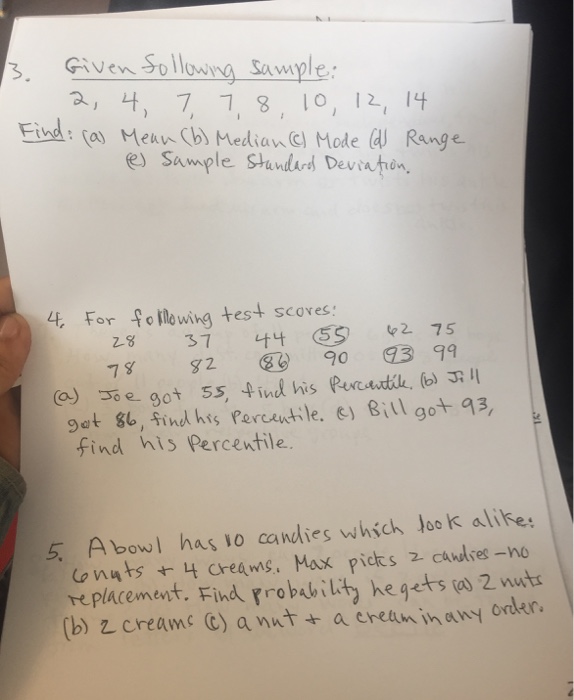 3. Given following sample:
2, 4, 7, 7, 8, 10, 12, 14
Find: (a) Mean (b) Median (c) Mode (d) Range
(e) Sample Standard Deviation.
4. For following test scores:
28 37 44 55 62 75
78 82 86 90 93 99
(a) Joe got 55, find his Percentile. (b) Jill
got 86, find his Percentile. (c) Bill got 93,
find his Percentile.
5. A bowl has 10 candies which look alike:
6 nuts + 4 creams. Max picks 2 candies - no
replacement. Find probability he gets (a) 2 nuts
(b) 2 creams (c) a nut + a cream in any order.